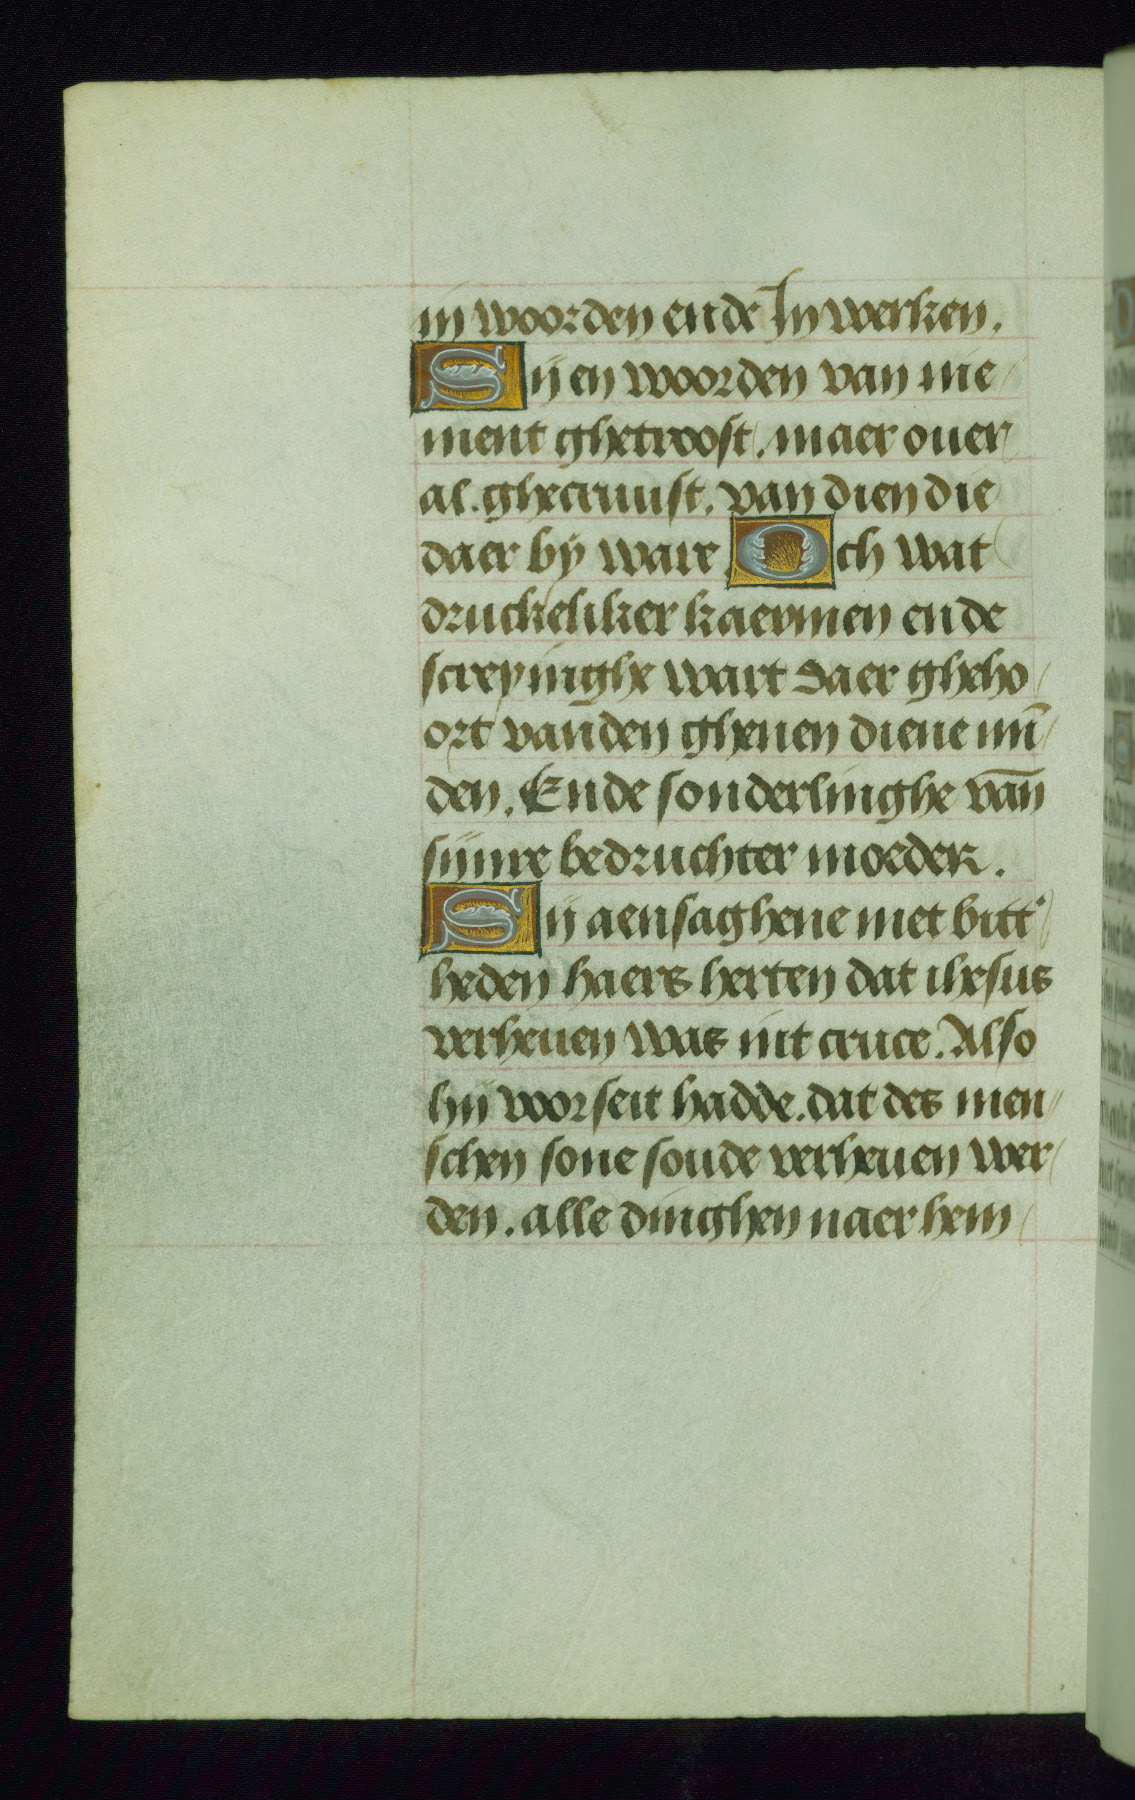 in woorden ende In werken.
Sij en woorden van nie
ment ghetroost. maer ouer
al. ghecruust. van dien die
daer bÿ ware Och wat
druckeliker kaermen ende
screyinghe wart daer gheho
ort vanden ghenen diene mī
den. Ende sonderlinghe vān
sijnre bedruchter moeder.
Sij aensaghene met bitt'
heden haers herten dat ihesus
verheuen was int cruce. Also
hij voorseit hadde. dat des men
schen sone soude verheuen wer
den. alle dinghen naer hem